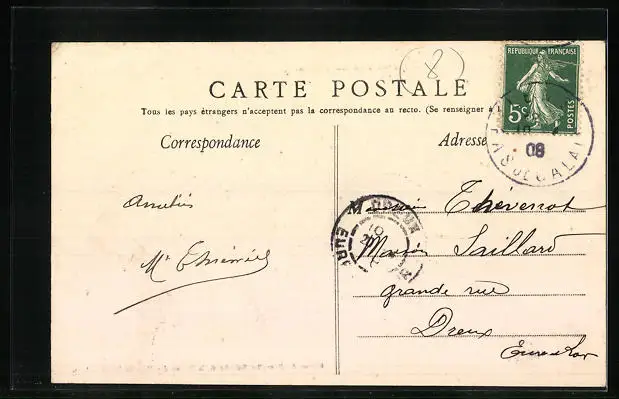 8
CARTE POSTALE
Tous les pays étrangers n'acceptent pas la correspondance au recto. (Se renseigner à l
Correspondance
Adresse
REPUBLIQUE FRANÇAISE
5c
POSTES
PAS DE CALAIS
08
Amitiés
M
Thévenot
DREUX
EURE
Maison Saillard
grande rue
Dreux
Eure & Loir